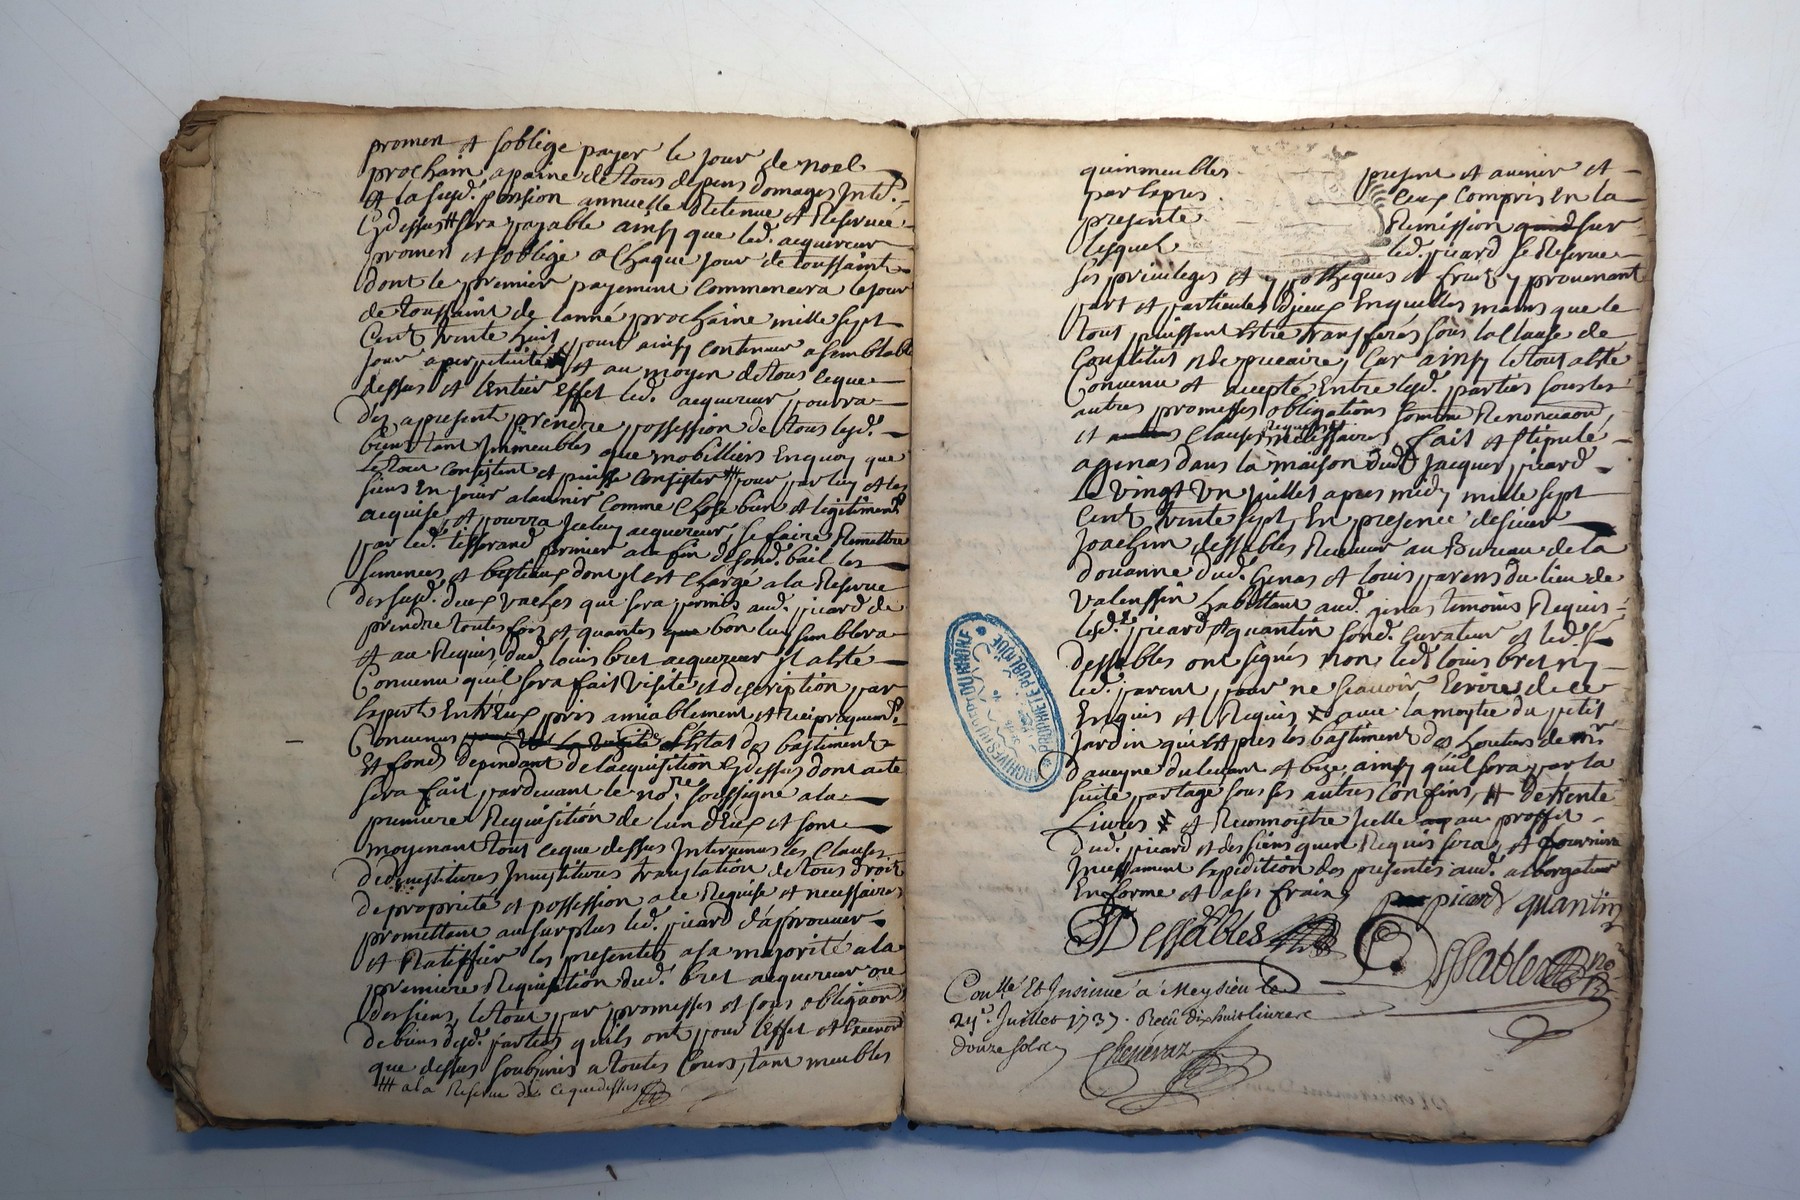 promen et soblige payer le jour de noel
prochain apaine de tous depens domages Int.
et la susd. pension annuelle Retenue et Reservee
Cydessus sera payable ainsy que led. acquereur
promen et soblige a Chaque jour de toussaint
dont le premier payement Commencera le jour
de toussaint de lanné prochaine mille sept
Cent trente huit pour ainsy continuer a semblable
jour a perpetuité et au moyen de tous ceque
dessus et Lentier effet led. acquereur pourra
des apresent prendre possession de tous lesd.
biens tant Immeubles que mobilliers En quoy que
le tout Consistent et puisse Consister pour par luy et les
siens En jouir alavenir Comme Chose bien et legitimem.t
acquise, et pourra Iceluy acquereur se faire Remettre
par led. tisserand fermier ala fin de sond. bail les
semences et bestiaux dont il est Chargé a la Reserve
des susd. deux vaches que sera permis aud. picard de
prendre toutes fois et quantes que bon luy semblera
et au Requis dud. louis bret acquereur il a été
Convenu quil sera fait visite et description par
Expert Entreux pris amiablement et Reciproquem.t
Convenus de Létat des bastiments
et fonds dependant de lacquisition Cydessus dont acte
sera fait pardevant le no.re soussigné a la
premiere Requisition de lun deux et sont
moyenant tout ceque dessus Intervenus les Clauses
de devestitures Investitures translation de tous droits
de propriété et possession a ce Requise et necessaires
promettant au surplus led. picard d'approuver
et Ratiffier les presentes a sa majorité a la
premiere Requisition dud. bret acquereur ou
des siens, le tout par promesses et sous obligaon
de biens desd. parties quils ont pour l'effet et Execuon
que dessus soubmis a toutes Cours, tant meubles
a la Reserve de cequedessus
quimmeubles present et avenir et
par Expres Ceux Compris En la
presente Remission sur
lesquels led. picard se Reserve
ses privileges et ypotheques et fruits y provenant
part et particules Dyceux En quelles mains que le
tout puissent Estre transferés sous la Clause de
Constitut et de precaire; Car ainsy le tout a été
Convenu et accepté Entre lesd. parties sous les
autres promesses obligations Renonciaon,
et Clauses necessaires Requises fait et stipulé
a genas dans la maison dud. Jacques picard
Le vingt un juillet apres midy mille sept
Cent trente sept, En presence de sieur
Joachim dessables Receveur au Bureau de la
Douanne dud. Genas et louis parent du lieu de
Valenssin habittant aud. genas temoins Requis
lesd. picard et quantin sond. Curateur et led. S.
dessables ont signés non led. louis bret ny
led. parent pour ne sçavoir Ecrire de ce
Enquis et Requis avec la moytié du petit
jardin qui est pres les bastiments des hoiries de
daveyne du levant et bize, ainsy quil sera par la
suitte partagé sous ses autres Confins, de trente
Livres et Reconnoytre Icelle au proffit
dud. picard et des siens quen Requis sera, et fournira
Incessament Expedition des presentes aud. albergateur
En forme et a ses frais
picard quantin
Dessables Dessables no.re
Con.llé Et Insinué a Meysieu le
juillet 1737. Reçu dix huit livres
douze sols
Chenevaz
ARCHIVES DEP. DU RHONE
PROPRIETE PUBLIQUE